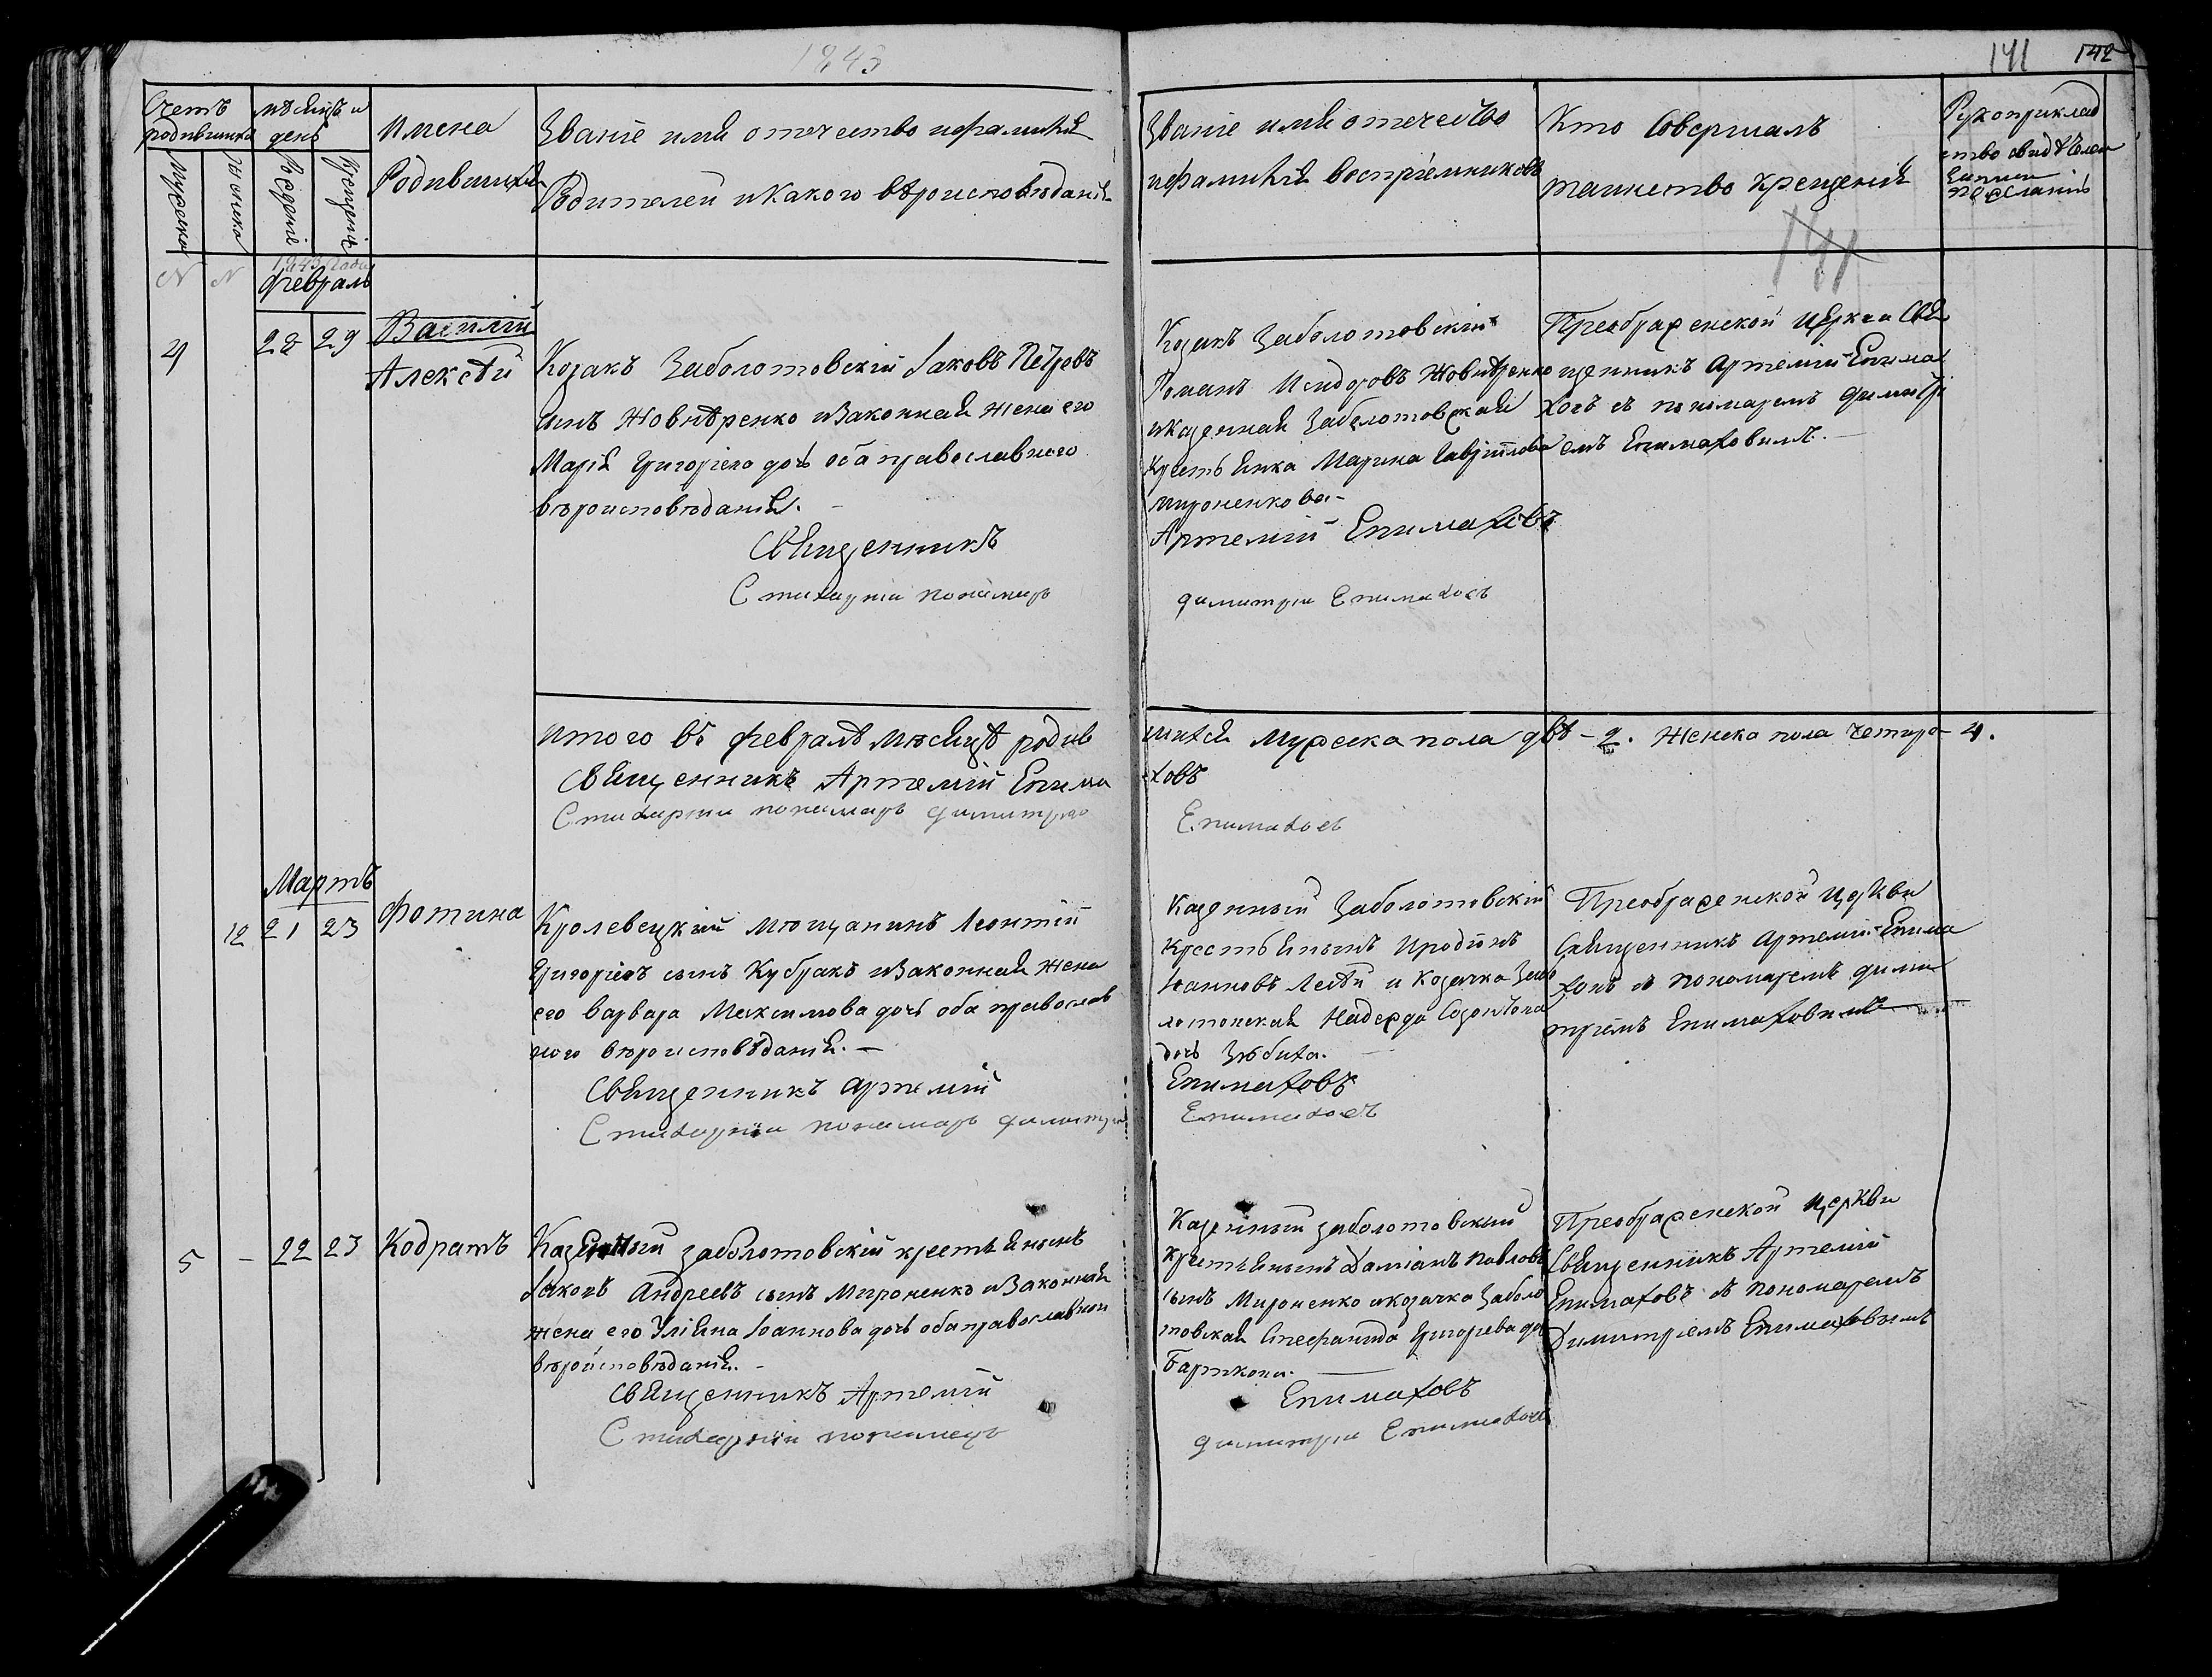 1843
141 142
Счетъ родившихся
мѣсяцъ и день
Имена Родившихся
Званіе имя отчество и фамилія
Родителей и какого вѣроисповѣданія
Званіе имя отечество
и фамилія воспріемниковъ
Кто совершалъ
таинство крещенія
Рукоприклад
ство свидѣтелей
записи
по желанію
Мужеска
Женска
Рожденіе
Крещеніе
141
N N
1843 года
Февраль
4 28 29 Василій
Алексѣй
Козакъ Заболотовскій Іаковъ Петровъ
сынъ Жовнѣренко и Законная жена его
Марія Григоріева дочь оба православнаго
вѣроисповѣданія.
Священникъ
Стихарній пономарь
Козакъ Заболотовскій
Романъ Исидоровъ Жовнѣренко
и казенная Заболотовская
Крестьянка Марина Гавріилова
Мироненкова
Артемій Епимаховъ
Димитрій Епимаховъ
Преображенской Церкви Свя
щенникъ Артемій Епима
ховъ съ пономаремъ Димитрі
емъ Епимаховимъ.
Итого въ февралѣ мѣсяцѣ родив
шихся Мужеска пола двѣ - 2. Женска пола четири - 4.
Священникъ Артемій Епима
ховъ
Стихарній пономарь Димитрій
Епимаховъ
Мартъ
12 21 23 Фотина
Кролевецкій мѣщанинъ Леонтій
Григоріевъ сынъ Кубракъ и Законная жена
его Варвара Максимова дочь оба православ
ного вѣроисповѣданія.
Священникъ Артемій
Стихарній пономарь Димитрій
Казенный Заболотовскій
Крестьянинъ Иродіонъ
Іоанновъ и Козачка Забо
лотовская Надежда
дочь
Епимаховъ
Епимаховъ
Преображенской Церкви
Священникъ Артемій Епима
ховъ съ пономаремъ Дими
тріемъ Епимаховимъ
5 - 22 23 Кодратъ
Казенный заболотовскій крестьянинъ
Іаковъ Андреевъ сынъ Мироненко и Законная
жена его Уліяна Іоаннова дочь оба православнои
вѣроисповѣданія.
Священникъ Артемій
Стихарній пономарь
Казенный заболотовскій
Крестьянинъ Даміанъ Павловъ
сынъ Мироненко и козачка Заболо
товская Стефанида Григорьева дочь
Епимаховъ
Димитрій Епимаховъ
Преображенской Церкви
Священникъ Артемій
Епимаховъ съ пономаремъ
Димитріемъ Епимаховымъ